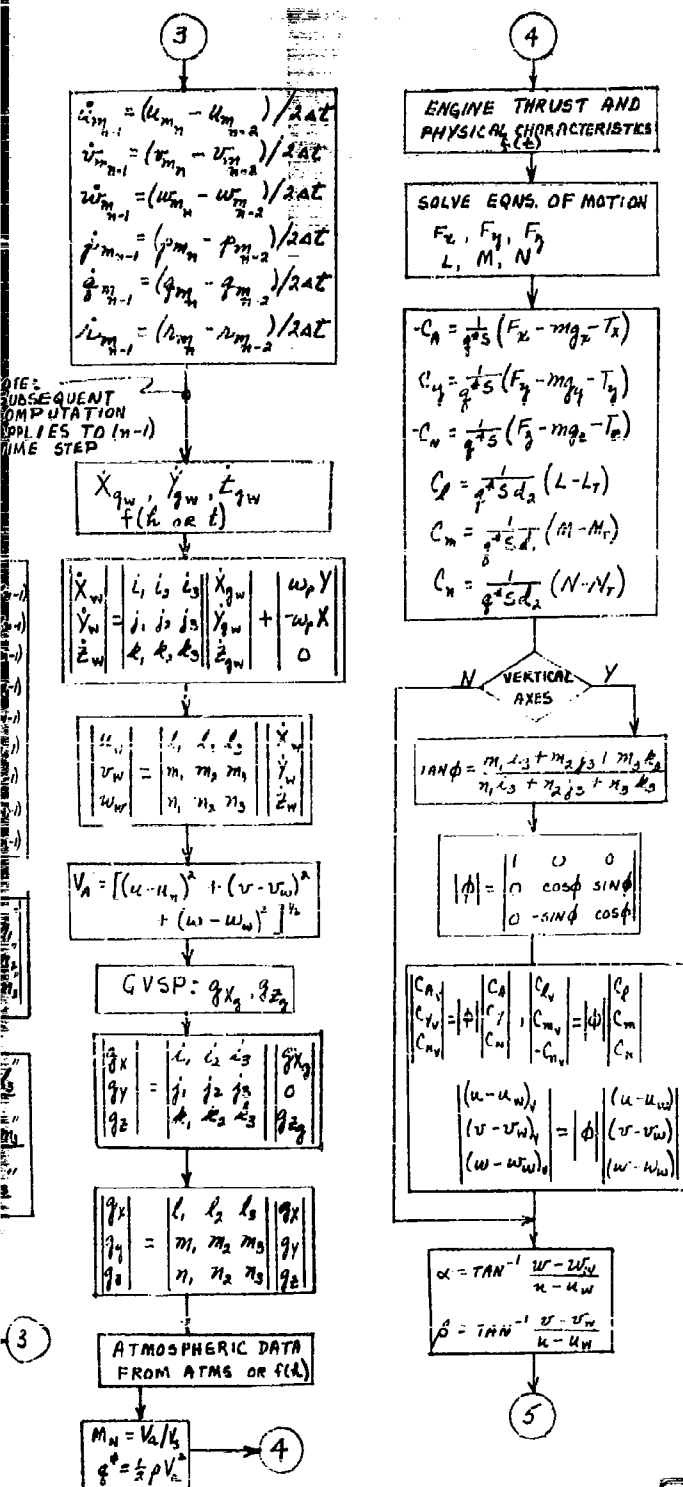 3
u̇_{m_{n-1}} = (u_{m_n} - u_{m_{n-2}})/2Δt
v̇_{m_{n-1}} = (v_{m_n} - v_{m_{n-2}})/2Δt
ẇ_{m_{n-1}} = (w_{m_n} - w_{m_{n-2}})/2Δt
ṗ_{m_{n-1}} = (p_{m_n} - p_{m_{n-2}})/2Δt
q̇_{m_{n-1}} = (q_{m_n} - q_{m_{n-2}})/2Δt
ṙ_{m_{n-1}} = (r_{m_n} - r_{m_{n-2}})/2Δt
OTE:
UBSEQUENT
OMPUTATION
PPLIES TO (n-1)
TIME STEP
Ẋ_{gw}, Ẏ_{gw}, Ż_{gw}
f(h OR t)
|Ẋ_w| = |i₁ i₂ i₃| |Ẋ_{gw}| + |ω_p Y|
|Ẏ_w| = |j₁ j₂ j₃| |Ẏ_{gw}| + |-ω_p X|
|Ż_w| = |k₁ k₂ k₃| |Ż_{gw}| + |0|
|u_w| = |l₁ l₂ l₃| |Ẋ_w|
|v_w| = |m₁ m₂ m₃| |Ẏ_w|
|w_w| = |n₁ n₂ n₃| |Ż_w|
V_A = [(u-u_w)² + (v-v_w)²
+ (w-w_w)²]^{1/2}
GVSP: g_{X_g}, g_{Z_g}
|g_X| = |i₁ i₂ i₃| |g_{X_g}|
|g_Y| = |j₁ j₂ j₃| |0|
|g_Z| = |k₁ k₂ k₃| |g_{Z_g}|
|g_x| = |l₁ l₂ l₃| |g_X|
|g_y| = |m₁ m₂ m₃| |g_Y|
|g_z| = |n₁ n₂ n₃| |g_Z|
3
ATMOSPHERIC DATA
FROM ATMS OR f(h)
M_N = V_A/V_S
q* = ½ρV_A²
4
4
ENGINE THRUST AND
PHYSICAL CHARACTERISTICS
f(t)
SOLVE EQNS. OF MOTION
F_x, F_y, F_z
L, M, N
-C_A = 1/(q*S) (F_x - mg_x - T_x)
C_y = 1/(q*S) (F_y - mg_y - T_y)
-C_N = 1/(q*S) (F_z - mg_z - T_z)
C_l = 1/(q*Sd₂) (L - L_T)
C_m = 1/(q*Sd₁) (M - M_T)
C_n = 1/(q*Sd₂) (N - N_T)
N VERTICAL Y
AXES
TANϕ = (m₁i₃ + m₂j₃ + m₃k₃)/(n₁i₃ + n₂j₃ + n₃k₃)
|1 0 0|
|ϕ| = |0 cosϕ SINϕ|
|0 -SINϕ cosϕ|
|C_{A_V}| |C_A| |C_{l_V}| |C_l|
|C_{Y_V}| = |ϕ| |C_Y|, |C_{m_V}| = |ϕ| |C_m|
|C_{N_V}| |C_N| |-C_{n_V}| |C_n|
|(u-u_w)_V| |(u-u_w)|
|(v-v_w)_V| = |ϕ| |(v-v_w)|
|(w-w_w)_V| |(w-w_w)|
α = TAN⁻¹ (w-w_w)/(u-u_w)
β = TAN⁻¹ (v-v_w)/(u-u_w)
5